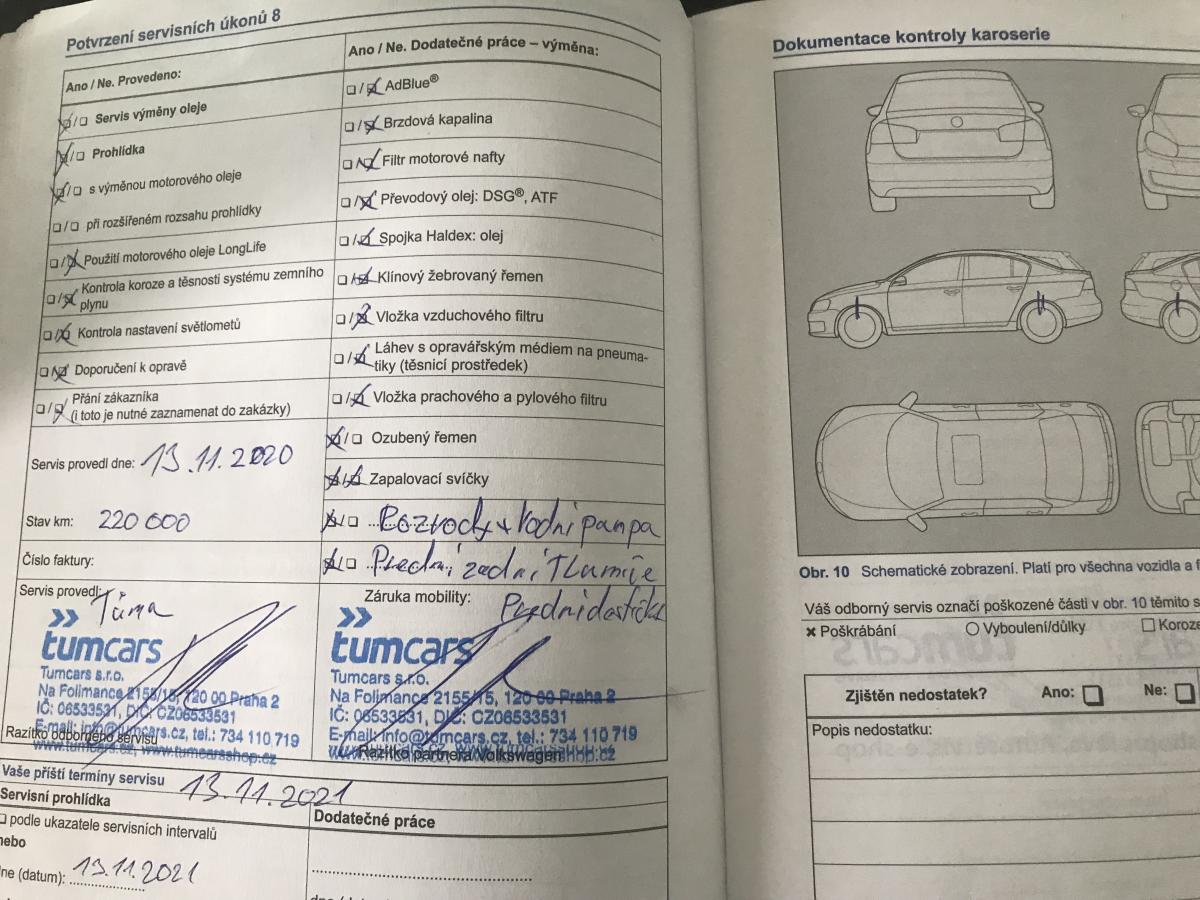 Potvrzení servisních úkonů 8
Ano / Ne. Provedeno:
Servis výměny oleje
Prohlídka
s výměnou motorového oleje
při rozšířeném rozsahu prohlídky
Použití motorového oleje LongLife
Kontrola koroze a těsnosti systému zemního
plynu
Kontrola nastavení světlometů
Doporučení k opravě
Přání zákazníka
(i toto je nutné zaznamenat do zakázky)
Servis provedl dne: 13.11.2020
Stav km: 220 000
Číslo faktury:
Servis provedl: Tůma
tumcars
Tumcars s.r.o.
Na Folimance 2155/15, 120 00 Praha 2
IČ: 06533531, DIČ: CZ06533531
E-mail: info@tumcars.cz, tel.: 734 110 719
Razítko odborného servisu
www.tumcars.cz, www.tumcarsshop.cz
Ano / Ne. Dodatečné práce – výměna:
AdBlue®
Brzdová kapalina
Filtr motorové nafty
Převodový olej: DSG®, ATF
Spojka Haldex: olej
Klínový žebrovaný řemen
Vložka vzduchového filtru
Láhev s opravářským médiem na pneuma-
tiky (těsnicí prostředek)
Vložka prachového a pylového filtru
Ozubený řemen
Zapalovací svíčky
Rozvody + Vodní pampa
Přední zadní Tlumiče
Záruka mobility: Přední
tumcars
Tumcars s.r.o.
Na Folimance 2155/15, 120 00 Praha 2
IČ: 06533531, DIČ: CZ06533531
E-mail: info@tumcars.cz, tel.: 734 110 719
Razítko partnera Volkswagen
Vaše příští termíny servisu 13.11.2021
Servisní prohlídka
podle ukazatele servisních intervalů
nebo
dne (datum): 13.11.2021
Dodatečné práce
Dokumentace kontroly karoserie
Obr. 10 Schematické zobrazení. Platí pro všechna vozidla a
Váš odborný servis označí poškozené části v obr. 10 těmito
× Poškrábání ○ Vyboulení/důlky □ Koroze
Zjištěn nedostatek? Ano: Ne:
Popis nedostatku: